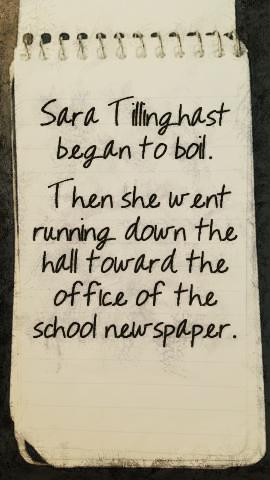 Sara Tillinghast
began to boil.
Then she went
running down the
hall toward the
office of the
school newspaper.